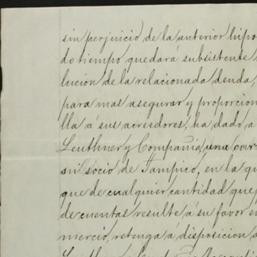 sin perjuicio de la anterior hipo
do tiempo quedará subsistente
lucion de la relacionada deuda,
para mas asegurar y proporcion
lla á sus acreedores, ha dado á
Leuthner y Compañia, una car
su socio de Tampico, en la qu
que de cualquier cantidad que
de cuentas resulte á su favor e
mercio, retenga a disposicion